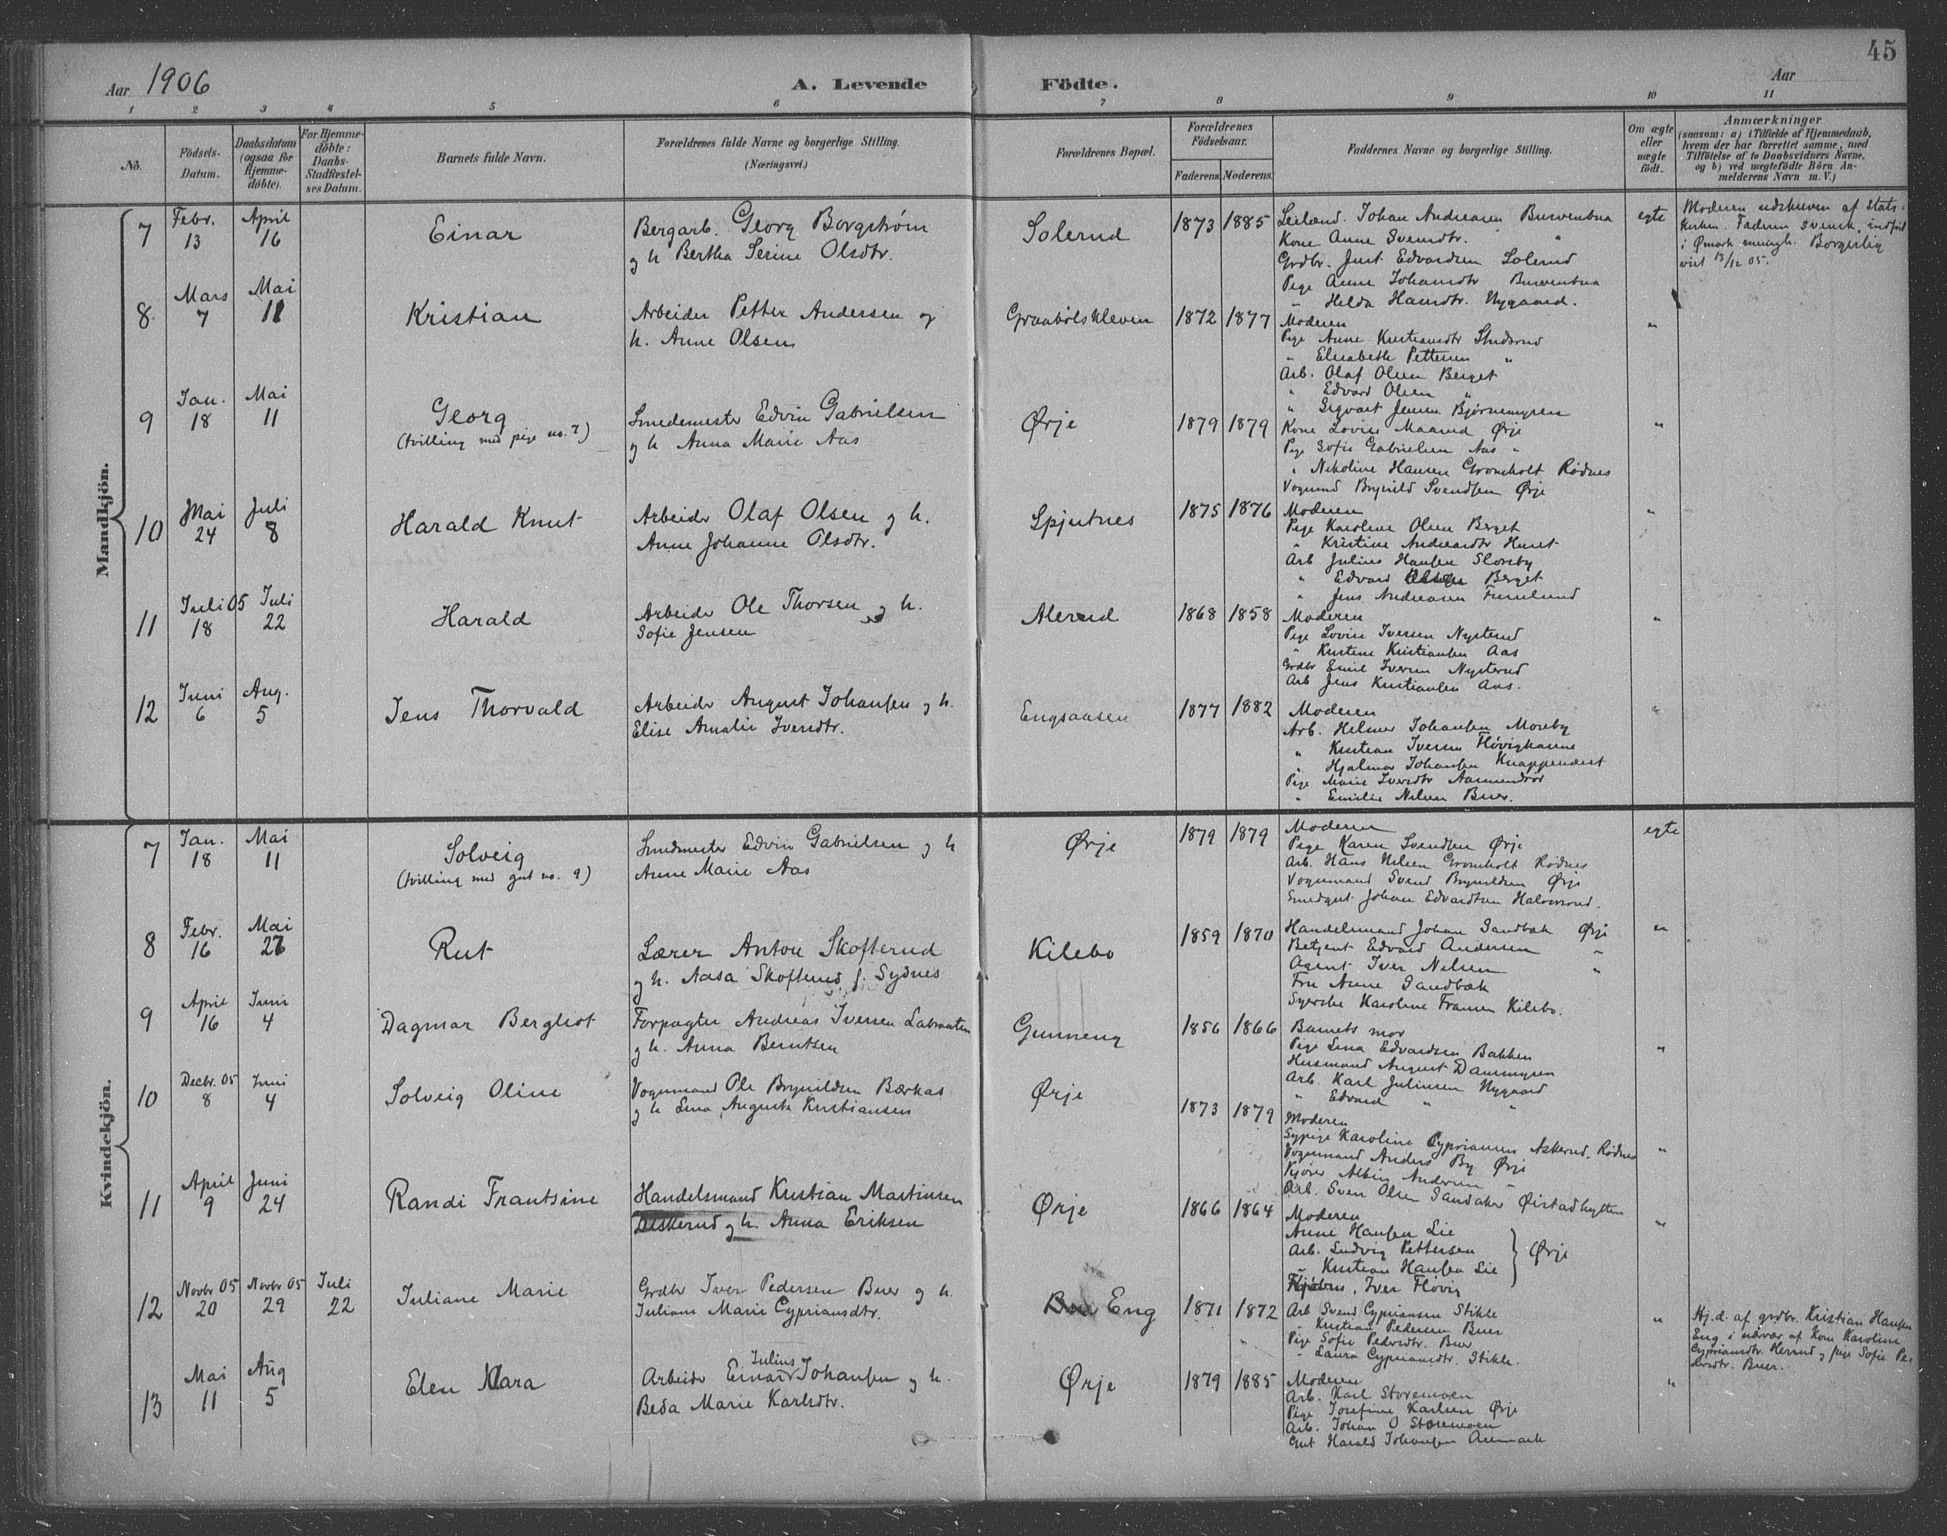 45
Aar 1906
A. Levende Födte.
Aar
1 2 3 4 5 6 7 8 9 10 11
No.
Födsels-
Datum.
Daabsdatum
(ogsaa for
Hjemme-
döbte).
For Hjemme-
döbte:
Daabs-
Stadfestel-
ses Datum.
Barnets fulde Navn.
Forældrenes fulde Navne og borgerlige Stilling.
(Næringsvei.)
Forældrenes Bopæl.
Forældrenes
Födselsaar.
Faderens. Moderens.
Faddernes Navne og borgerlige Stilling.
Om ægte
eller
uægte
födt.
Anmærkninger
(saasom: a) i Tilfælde af Hjemmedaab,
hvem der har forrettet samme, med
Tilföielse af to Daabsvidners Navne,
og b) ved uægtefödte Börn An-
melderens Navn m. V.)
Mandkjön.
7
Febr. 13
April 16
Einar
Bergarb. Georg Borgstrøm
og h Bertha Serine Olsdtr.
Solerud
1873 1885
Leilænd. Johan Andreasen
Kone Anne Svendtr. "
Grdbr. Just Edvardsen Solerud
Pige Anne Johansdtr
" Helda Hansdtr. Nygaard.
egte
Moderen udskreven af Stats-
kirken. Faderen svensk, indført
i Ømark menigh. Borgerlig
viet 13/12 05.
8
Mars 7
Mai 11
Kristian
Arbeider Petter Andersen og
h. Anne Olsen
Graabølskleven
1872 1877
Moderen
Pige Anne Kristiansdtr
" Elisabeth Pettersen "
Arb. Olaf Olsen Berget
" Edvard Olsen "
" Sigvart Jensen Bjørnemyren
"
9
Jan. 18
Mai 11
Georg
(tvilling med pige no. 7)
Smedemester Edvin Gabrielsen
og h Anna Marie Aas
Ørje
1879 1879
Kone Lovise Maarud Ørje
Pige Sofie Gabrielsen Aas "
" Nikoline Hansen Gromholt Rødnes
Vognmd Brynild Svendsen Ørje
"
10
Mai 24
Juli 8
Harald Knut
Arbeider Olaf Olsen og h.
Anne Johanne Olsdtr.
Spjutnes
1875 1876
Moderen
Pige Karoline Olsen Berget
" Kristine Andreasdtr
Arb Julius Hansen Sloreby
" Edvard Olsen Berget
" Jens Andreasen
"
11
Juli 05 18
Juli 22
Harald
Arbeider Ole Thorsen og h.
Sofie Jensen
Alerud
1868 1858
Moderen
Pige Lovise Iversen Nysterud
" Kristine Kristiansen Aas
Grdbr Emil Iversen Nysterud
Arb Jens Kristiansen Aas.
"
12
Juni 6
Aug. 5
Jens Thorvald
Arbeider August Johansen og h.
Elise Amalie Iversdtr.
Engsaasen
1877 1882
Moderen
Arb. Helmer Johansen Moseby
" Kristian Iversen
" Hjalmar Johansen
Pige Marie Iversdtr Aamundrød
" Emilie Nilsen Buer.
"
Kvindekjön.
7
Jan. 18
Mai 11
Solveig
(tvilling med gut no. 9)
Smedmester Edvin Gabrielsen og h
Anne Marie Aas
Ørje
1879 1879
Moderen
Pige Karen Svendsen Ørje
Arb. Hans Nilsen Gromholt Rødnes
Vognmand Svend Brynildsen Ørje
Smedgut Johan Edvardsen
egte
8
Febr. 16
Mai 27
Rut
Lærer Anton Skofterud
og h. Aasa Skofterud f. Sydnes
Kilebo
1859 1870
Handelsmand Johan Sandbæk Ørje
Betjent Edvard Andersen "
Agent Iver Nilsen "
Fru Anne Sandbæk
Syerske Karoline Fransen Kilebo.
"
9
April 16
Juni 4
Dagmar Bergliot
Forpagter Andreas Iversen Labraaten
og h. Anna Berntsen
Gunneng
1856 1866
Barnets mor
Pige Lina Edvardsen Bakken
Husmand August Dammyren
Arb. Karl Juliussen Nygaard
" Edvard " "
"
10
Decbr. 05 8
Juni 4
Solveig Oline
Vognmand Ole Brynildsen Bærkas
og h Lina Auguste Kristiansen
Ørje
1873 1879
Moderen
Sypige Karoline Cypriansen Askerud, Rødnes
Vognmand Anders By Ørje
Kjører Albin Andersen "
Arb. Sven Olsen Sandaker Øistadhytten
"
11
April 9
Juni 24
Randi Frantsine
Handelsmand Kristian Martinsen
Askerud og h. Anna Eriksen
Ørje
1866 1864
Moderen
Anne Hansen Lie
Arb. Ludvig Pettersen
" Kristian Hansen Lie
} Ørje
Iver Fløvig
"
12
Novbr 05 20
Novbr 05 29
Juli 22
Juliane Marie
Grdbr Iver Pedersen Buer og h.
Juliane Marie Cypriansdtr.
Bue Eng
1871 1872
Arb Svend Cypriansen Stikle
" Kristian Pedersen Buer
Pige Sofie Pedersdtr. Buer
" Laura Cypriansdtr. Stikle.
"
Hj.d. af grdbr. Kristian Hansen
Eng i nærvær af Kone Karoline
Cypriansdtr. Herrud og pige Sofie Pe-
dersdtr. Buer.
13
Mai 11
Aug 5
Elen Klara
Arbeider Einar Julius Johansen og h.
Beda Marie Karlsdtr.
Ørje
1879 1885
Moderen
Arb. Karl Storemoen
Pige Josefine Karlsen Ørje
Arb. Johan O Storemoen
Gut Harald Johansen Aremark
"